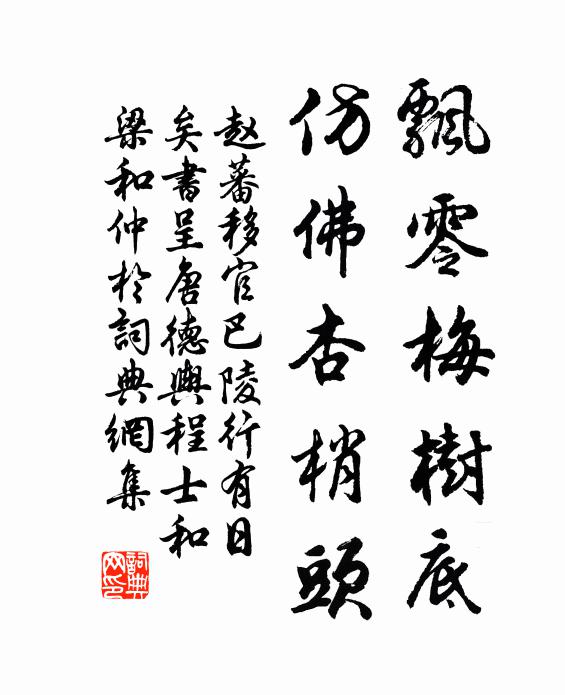 飄零梅樹底
仿佛杏梢頭
赵蕃移官巴陵行有日
矣書呈唐德輿程士和
梁和仲於詞典網集
詞典
网印